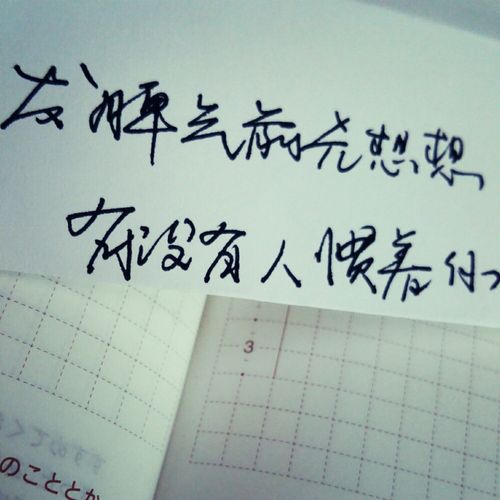 发脾气前先想想
有没有人惯着你
3
のこととか